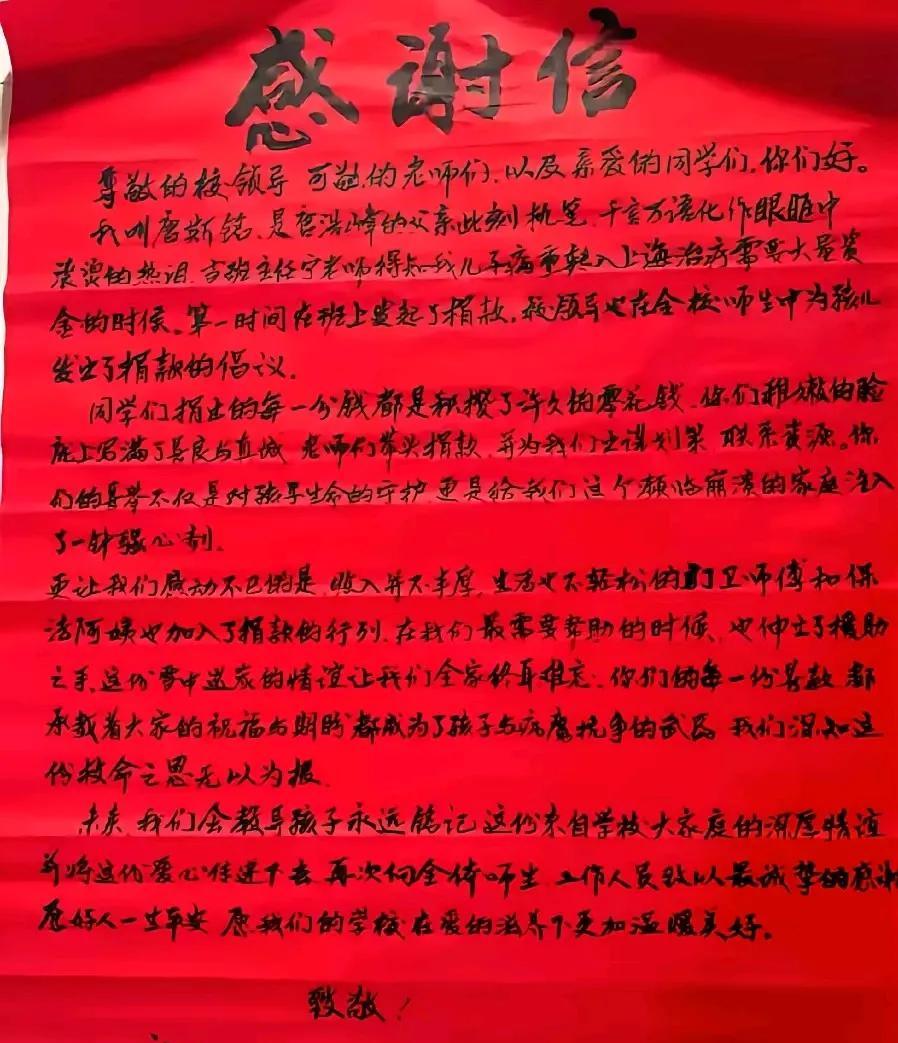 感谢信
尊敬的校领导 可敬的老师们,以及亲爱的同学们,你们好。
我叫唐斯铭,是唐浩峰的父亲此刻执笔,千言万语化作眼眶中
滚滚的热泪,当班主任宁老师得知我儿子病重转入上海治病需要大量资
金的时候。第一时间在班上发起了捐款,校领导也在全校师生中为孩儿
发出了捐款的倡议。
同学们捐出的每一分钱都是积攒了许久的零花钱,你们稚嫩的脸
庞上写满了善良与真诚 老师们带头捐款,并为我们出谋划策 联系资源。你
们的善举不仅是对孩子生命的守护,更是给我们这个濒临崩溃的家庭注入
了一针强心剂。
更让我们感动不已的是,收入并不丰厚,生活也不轻松的门卫师傅和保
洁阿姨也加入了捐款的行列,在我们最需要帮助的时候,也伸出了援助
之手,这份雪中送炭的情谊让我们全家终身难忘,你们的每一份善款,都
承载着大家的祝福与期盼都成为了孩子与病魔抗争的武器,我们深知这
份救命之恩无以为报,
未来,我们会教导孩子永远铭记这份来自学校大家庭的深厚情谊
并将这份爱心传递下去,再次向全体师生,工作人员致以最诚挚的感谢
愿好人一生平安 愿我们的学校在爱的滋养下更加温暖美好。
致敬!